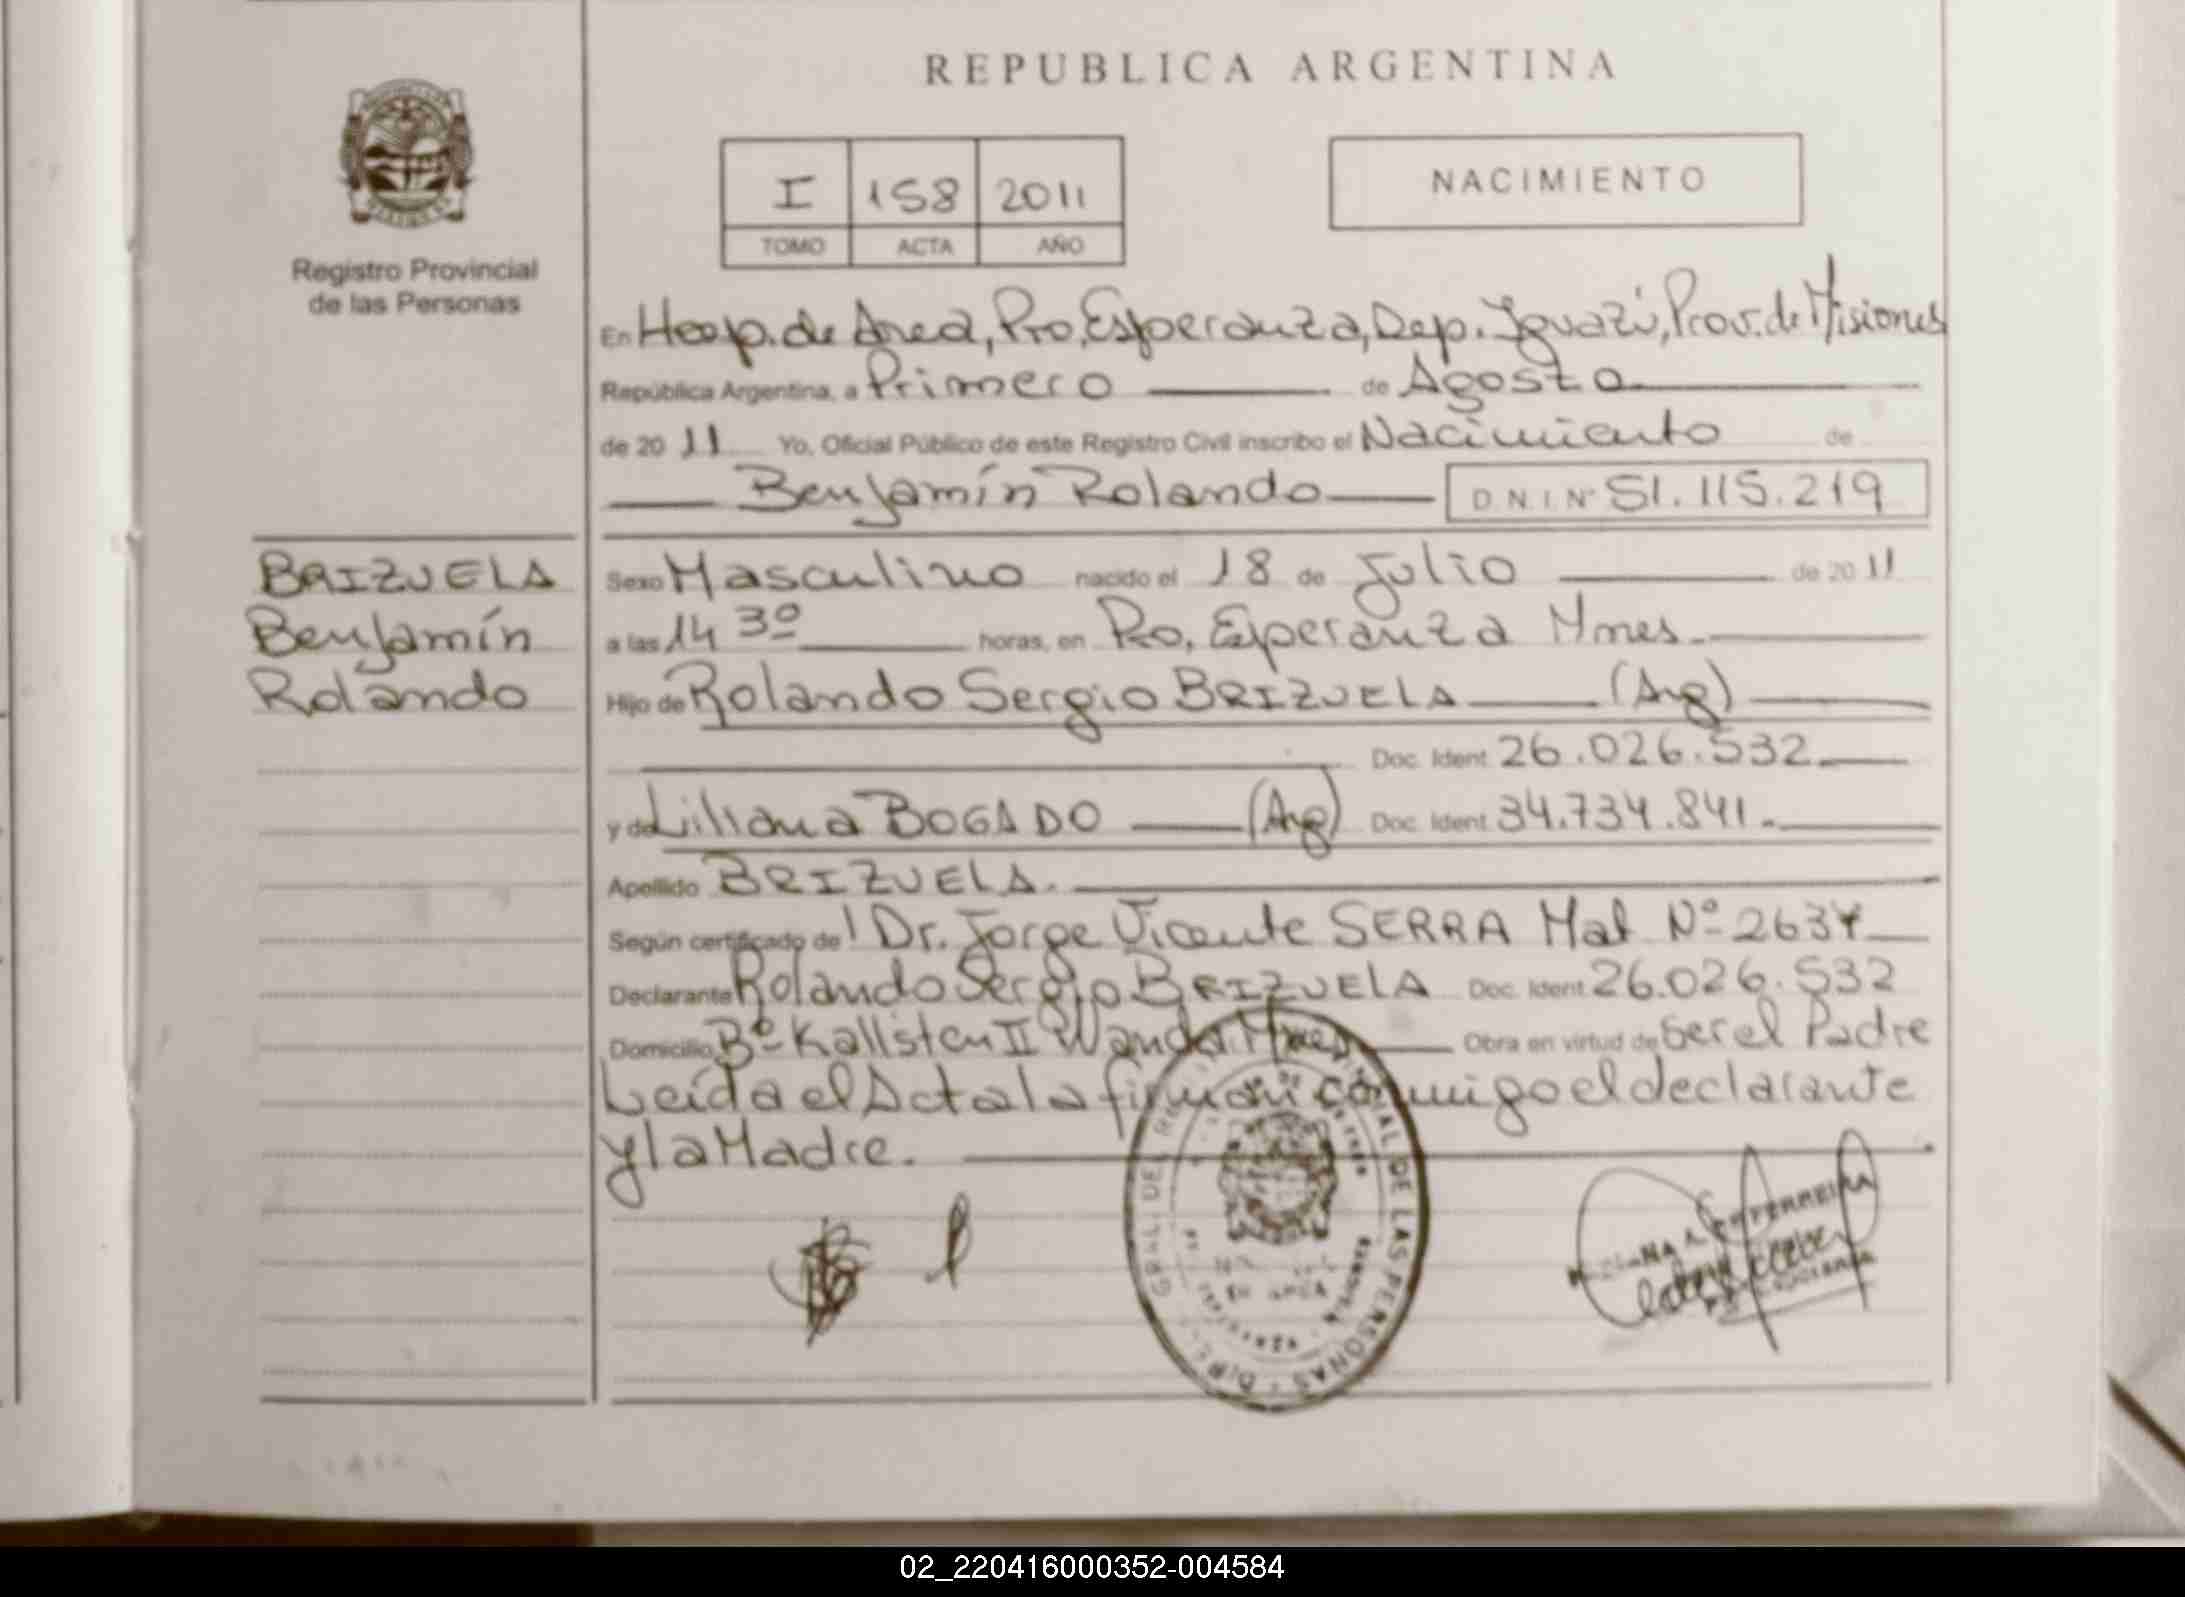 REPUBLICA ARGENTINA
I 158 2011
TOMO ACTA AÑO
NACIMIENTO
Registro Provincial
de las Personas
En Hosp. de Area, Pto. Esperanza, Dep. Iguazú, Prov. de Misiones
República Argentina, a Primero de Agosto
de 20 11 Yo, Oficial Público de este Registro Civil inscribo el Nacimiento de
Benjamín Rolando D.N.I. Nº 51.115.219
BRIZUELA
Benjamín
Rolando
Sexo Masculino nacido el 18 de Julio de 20 11
a las 14 30 horas, en Pto. Esperanza Mnes.
Hijo de Rolando Sergio BRIZUELA (Arg)
Doc. Ident. 26.026.532
y de Liliana BOGADO (Arg) Doc. Ident. 34.734.841.-
Apellido BRIZUELA.
Según certificado del Dr. Jorge Vicente SERRA Mat Nº 2634
Declarante Rolando Sergio BRIZUELA Doc. Ident. 26.026.532
Domicilio Bº Kallsten II Wanda Mnes Obra en virtud de Ser el Padre
Leída el Acta la firman conmigo el declarante
y la Madre.
GRAL. DEL DE LAS PERSONAS
02_220416000352-004584